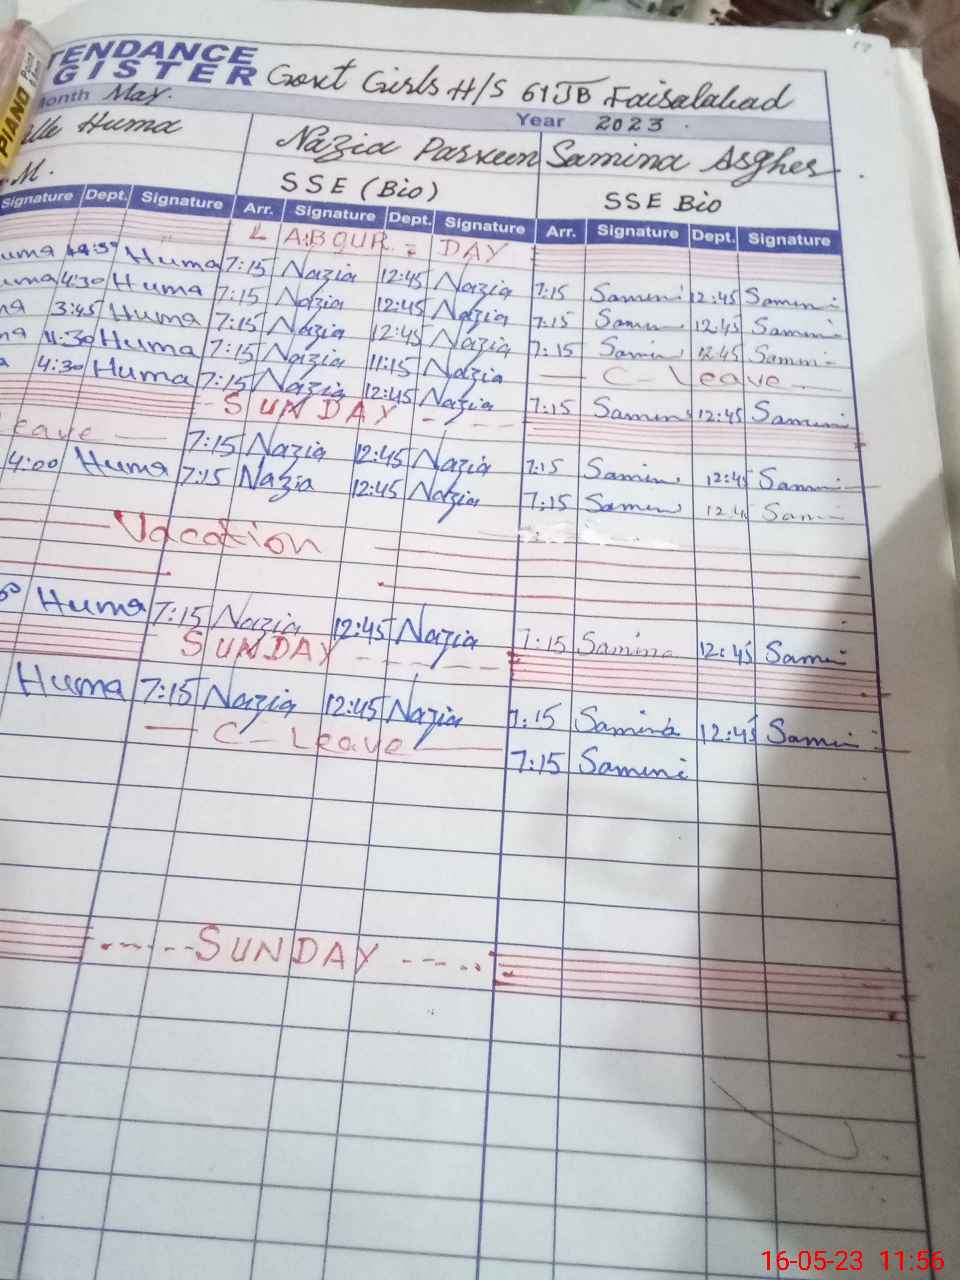 TENDANCE
GISTER Govt Girls H/S 61JB Faisalabad
Month May. Year 2023
Huma Nazia Parveen Samina Asgher
.M. SSE (Bio) SSE Bio
Signature Dept. Signature Arr. Signature Dept. Signature Arr. Signature Dept. Signature
LABOUR = DAY
uma Huma 7:15 Nazia 12:45 Nazia 7:15 Samini 12:45 Samini
uma 4:30 Huma 7:15 Nazia 12:45 Nazia 7:15 Samin 12:45 Samini
ma 3:45 Huma 7:15 Nazia 12:45 Nazia 7:15 Samin 12:45 Sammi
ma 11:30 Huma 7:15 Nazia 11:15 Nazia — C-Leave —
a 4:30 Huma 7:15 Nazia 12:45 Nazia 7:15 Samin 12:45 Samini
- SUNDAY - - -
eave — 7:15 Nazia 12:45 Nazia 7:15 Samin 12:45 Sammi
4:00 Huma 7:15 Nazia 12:45 Nazia 7:15 Samin Sami
— Vacation —
Huma 7:15 Nazia 12:45 Nazia 7:15 Samina 12:45 Sami
SUNDAY - - - - -
Huma 7:15 Nazia 12:45 Nazia 7:15 Samina 12:45 Sami
— C-Leave — 7:15 Samini
- - - - - SUNDAY - - - - -
PIANO
Point
16-05-23 11:56